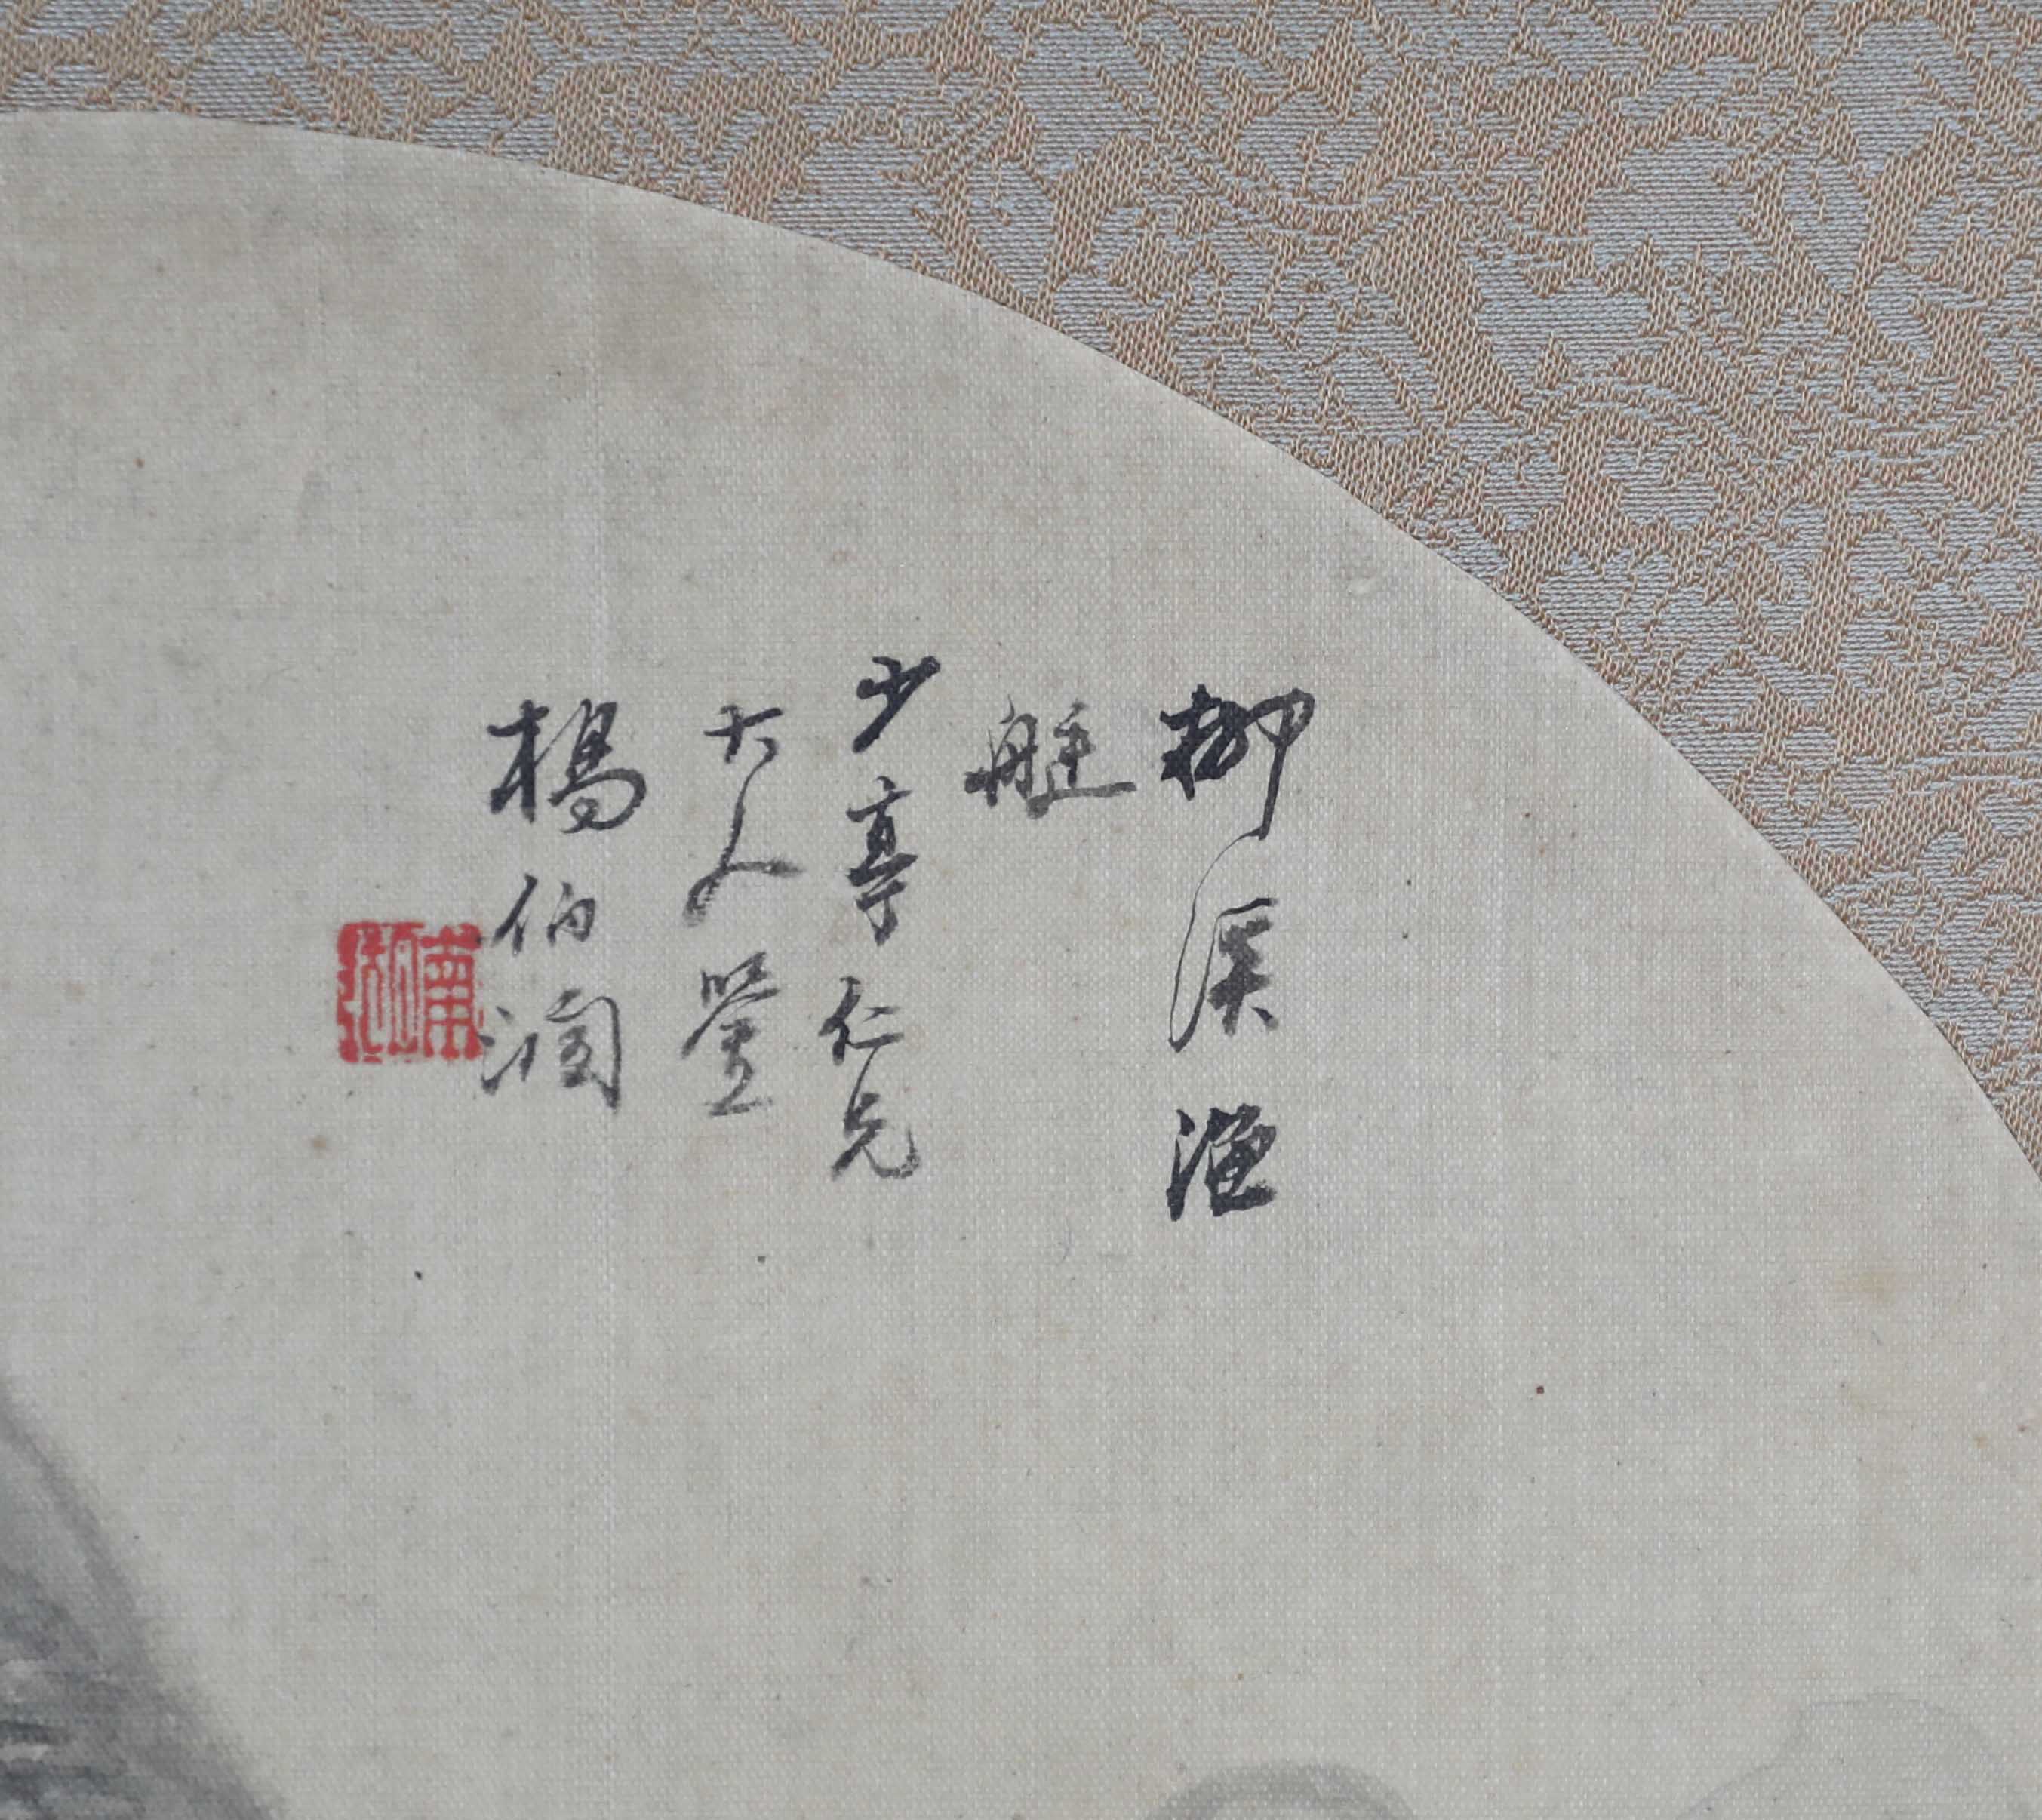 柳溪漁
艇
少亭仁兄
大人鑒
楊伯潤
南湖